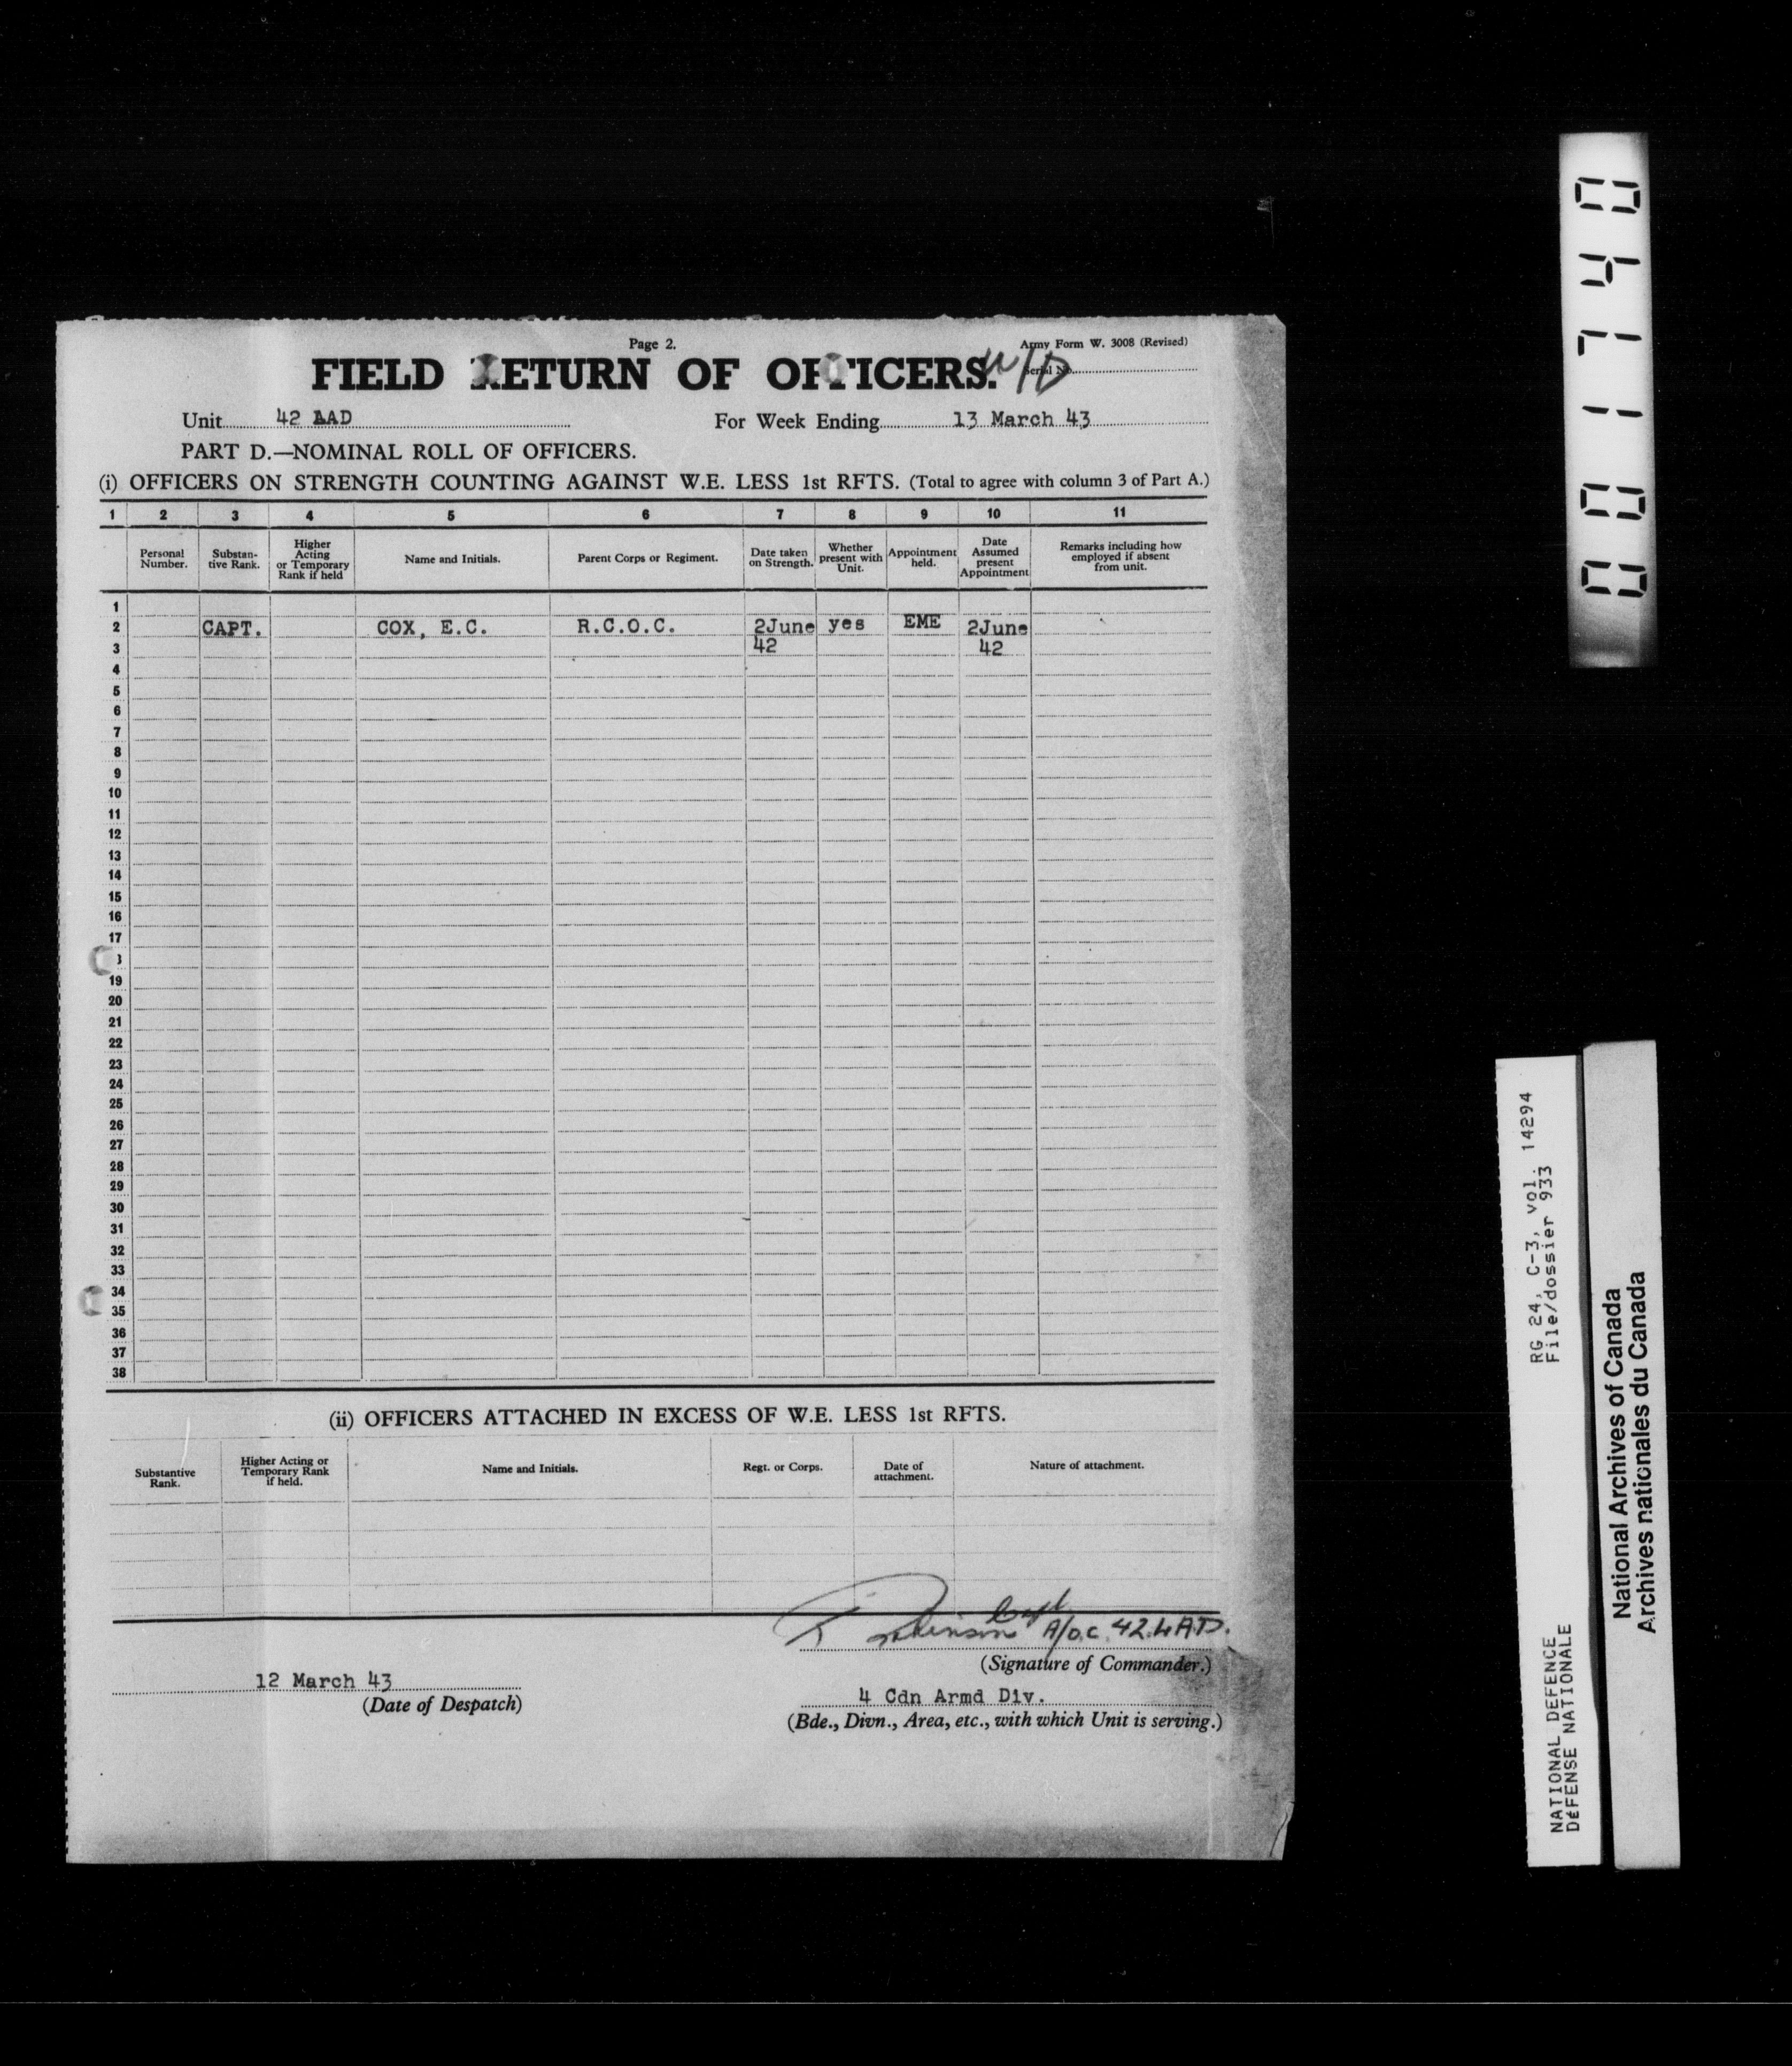 Page 2.
Army Form W. 3008 (Revised)
FIELD RETURN OF OFFICERS.
Serial No.
W/D
Unit 42 LAD For Week Ending 13 March 43
PART D.—NOMINAL ROLL OF OFFICERS.
(i) OFFICERS ON STRENGTH COUNTING AGAINST W.E. LESS 1st RFTS. (Total to agree with column 3 of Part A.)
1 2 3 4 5 6 7 8 9 10 11
Personal Number. Substan-tive Rank. Higher Acting or Temporary Rank if held Name and Initials. Parent Corps or Regiment. Date taken on Strength. Whether present with Unit. Appointment held. Date Assumed present Appointment Remarks including how employed if absent from unit.
1
2 CAPT. COX, E.C. R.C.O.C. 2June yes EME 2June
3 42 42
4
5
6
7
8
9
10
11
12
13
14
15
16
17
19
20
21
22
23
24
25
26
27
28
29
30
31
32
33
34
35
36
37
38
(ii) OFFICERS ATTACHED IN EXCESS OF W.E. LESS 1st RFTS.
Substantive Rank. Higher Acting or Temporary Rank if held. Name and Initials. Regt. or Corps. Date of attachment. Nature of attachment.
Capt A/O.C. 42 LAD.
(Signature of Commander.)
12 March 43
(Date of Despatch)
4 Cdn Armd Div.
(Bde., Divn., Area, etc., with which Unit is serving.)
001740
RG 24, C-3, vol. 14294
File/dossier 933
NATIONAL DEFENCE
DéFENSE NATIONALE
National Archives of Canada
Archives nationales du Canada